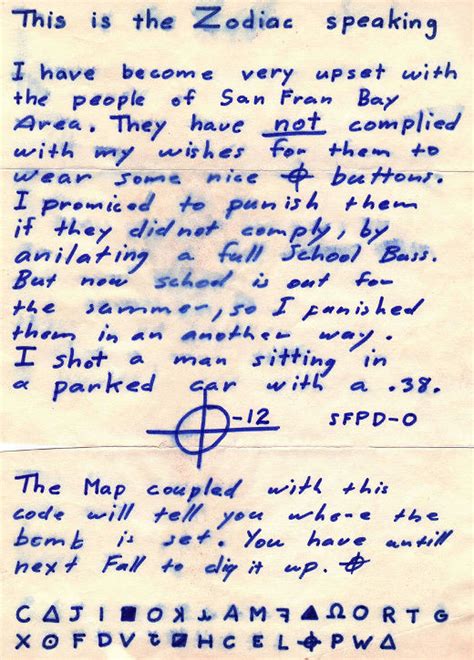 This is the Zodiac speaking
I have become very upset with
the people of San Fran Bay
Area. They have not complied
with my wishes for them to
wear some nice ⌖ buttons.
I promiced to punish them
if they did not comply, by
anilating a full School Buss.
But now school is out for
the summer, so I punished
them in an another way.
I shot a man sitting in
a parked car with a .38.
⌖-12 SFPD-0
The Map coupled with this
code will tell you where the
bomb is set. You have untill
next Fall to dig it up. ⌖
C Δ J I ■ O ꓘ ⅄ A M ꟻ ▲ Ω O R T G
X O F D V ⵒ ◘ H C E L ⌖ P W Δ